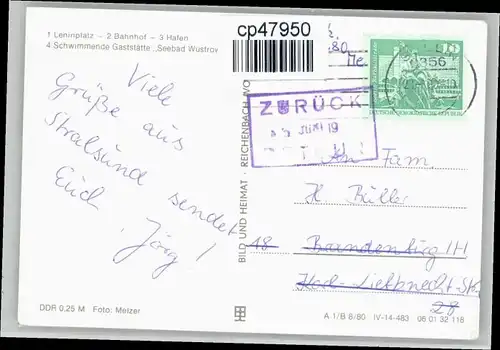 cp47950
1 Leninplatz – 2 Bahnhof – 3 Hafen
4 Schwimmende Gaststätte „Seebad Wustrow
Viele
Grüße aus
Stralsund sendet
Euch
Jörg!
10
DEUTSCHE DEMOKRATISCHE REPUBLIK
ZURÜCK
JUNI 19
Fam.
H. Büller
18 Brandenburg
Liebknecht-Str.
28
BILD UND HEIMAT · REICHENBACH
DDR 0,25 M Foto: Melzer
A 1/B 8/80 IV-14-483 06 01 32 118